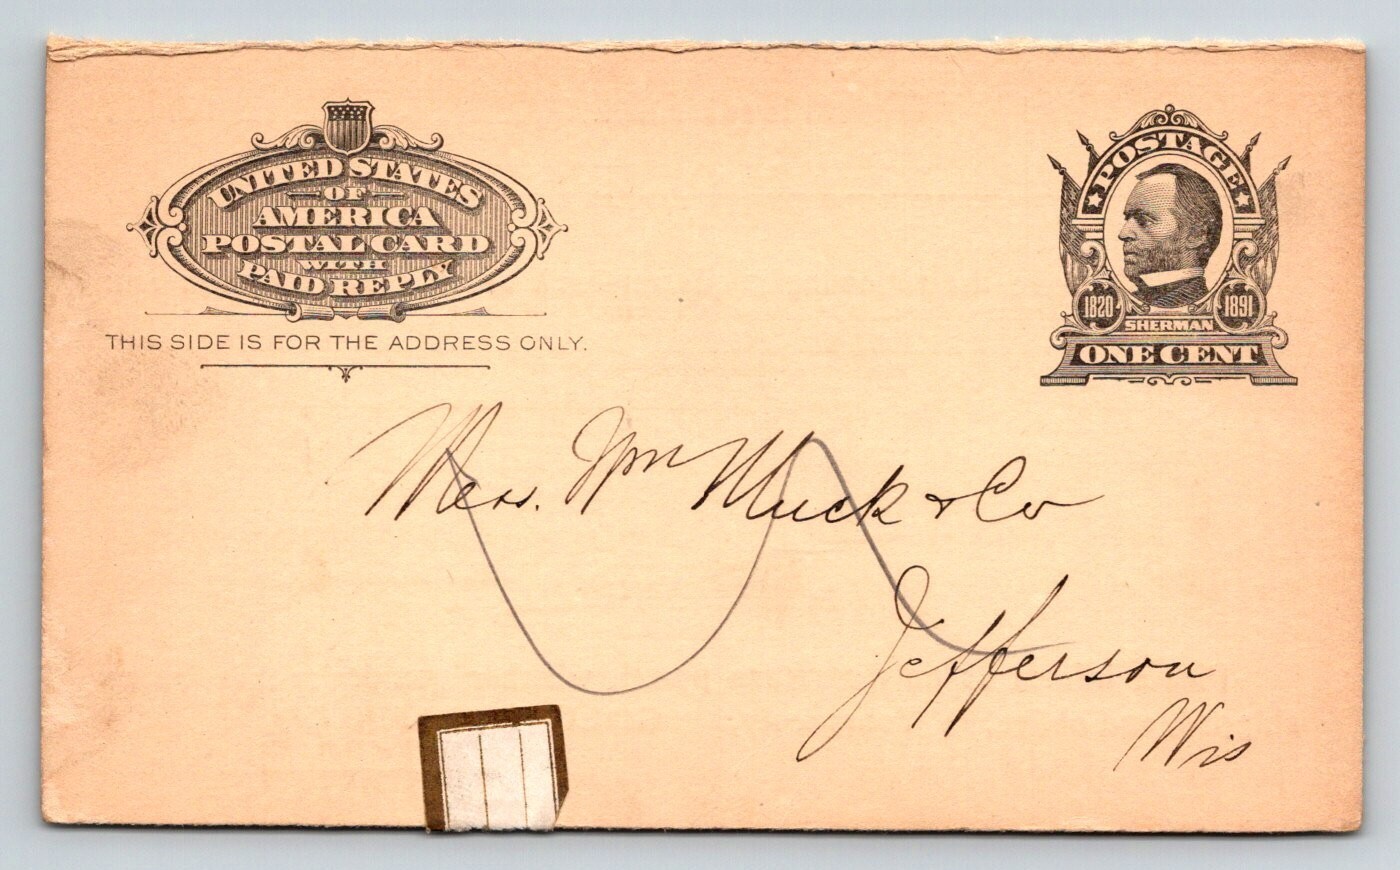 UNITED STATES
OF
AMERICA
POSTAL CARD
WITH
PAID REPLY
THIS SIDE IS FOR THE ADDRESS ONLY.
POSTAGE
1820 1891
SHERMAN
ONE CENT
Mess. Wm Muck & Co
Jefferson
Wis